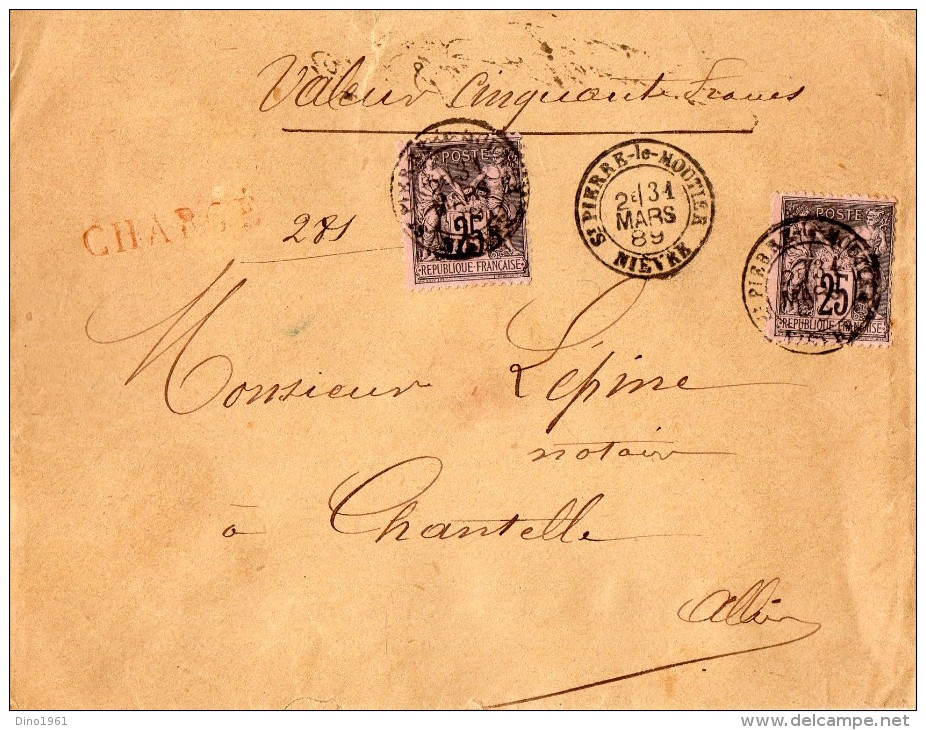 Valeur Cinquante Francs
CHARGÉ
281
POSTE
25
REPUBLIQUE FRANÇAISE
ST PIERRE-le-MOUTIER
2E 31
MARS
89
NIÈVRE
POSTE
25
REPUBLIQUE FRANÇAISE
Monsieur Lépine
notaire
à Chantelle
Allier
Dino1961
delcampe.net